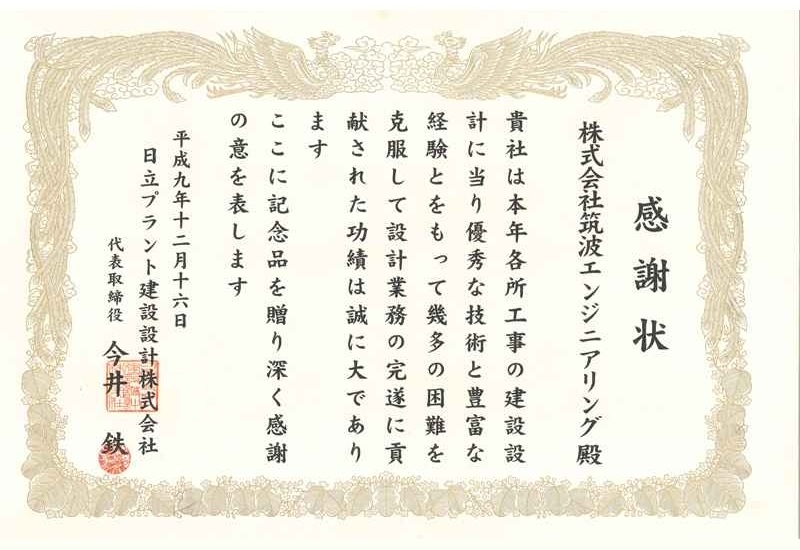 感謝状
株式会社筑波エンジニアリング殿
貴社は本年各所工事の建設設
計に当り優秀な技術と豊富な
経験とをもって幾多の困難を
克服して設計業務の完遂に貢
献された功績は誠に大であり
ます
ここに記念品を贈り深く感謝
の意を表します
平成九年十二月十六日
日立プラント建設設計株式会社
代表取締役 今井 鉄